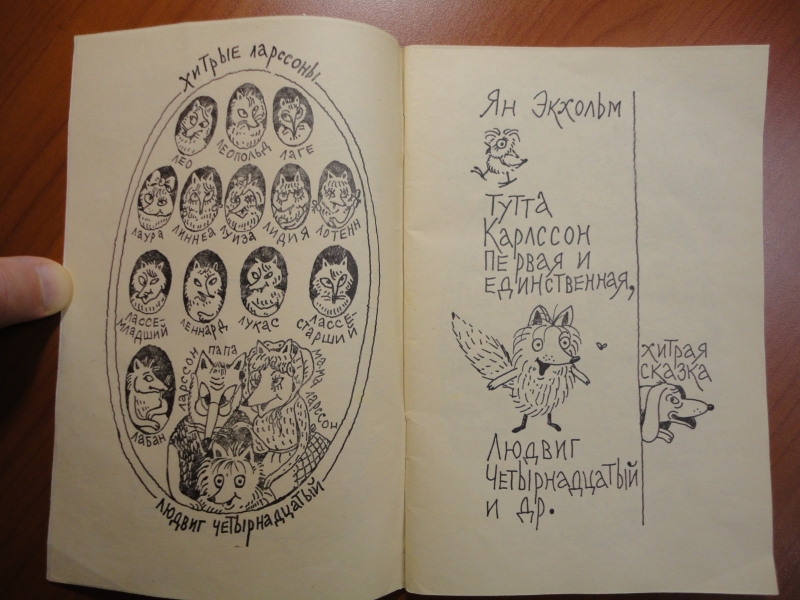 хитрые ларссоны
лео
леопольд
лаге
лаура
линнеа
луиза
лидия
лотенн
лассе-
младший
леннард
лукас
лассе-
старший
лабан
ларссон папа
мама ларссон
людвиг четырнадцатый
Ян Экхольм
Тутта
Карлссон
первая и
единственная,
хитрая
сказка
Людвиг
четырнадцатый
и др.